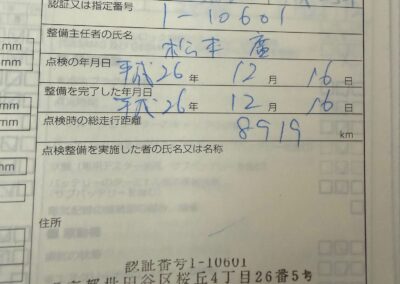 認証又は指定番号
1-10601
整備主任者の氏名
松本 廣
点検の年月日
平成26年 12月 16日
整備を完了した年月日
平成26年 12月 16日
点検時の総走行距離
8919 km
点検整備を実施した者の氏名又は名称
住所
認証番号1-10601
世田谷区桜丘4丁目26番5号
mm
mm
mm
mm